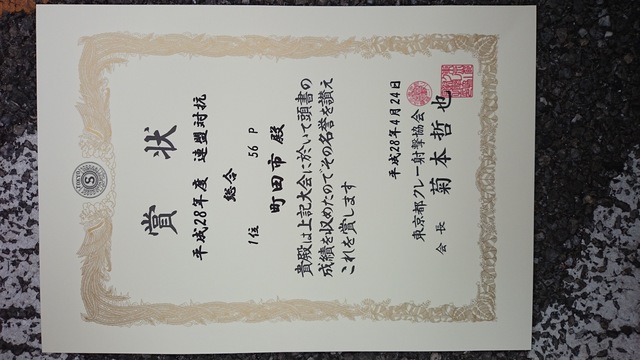 賞状
平成28年度 連盟対抗
総合
1位 56P
町田市殿
貴殿は上記大会に於いて頭書の
成績を収めたのでその名誉を讃え
これを賞します
平成28年4月24日
東京都クレー射撃協会
会長 菊本哲也
TOKYO
S